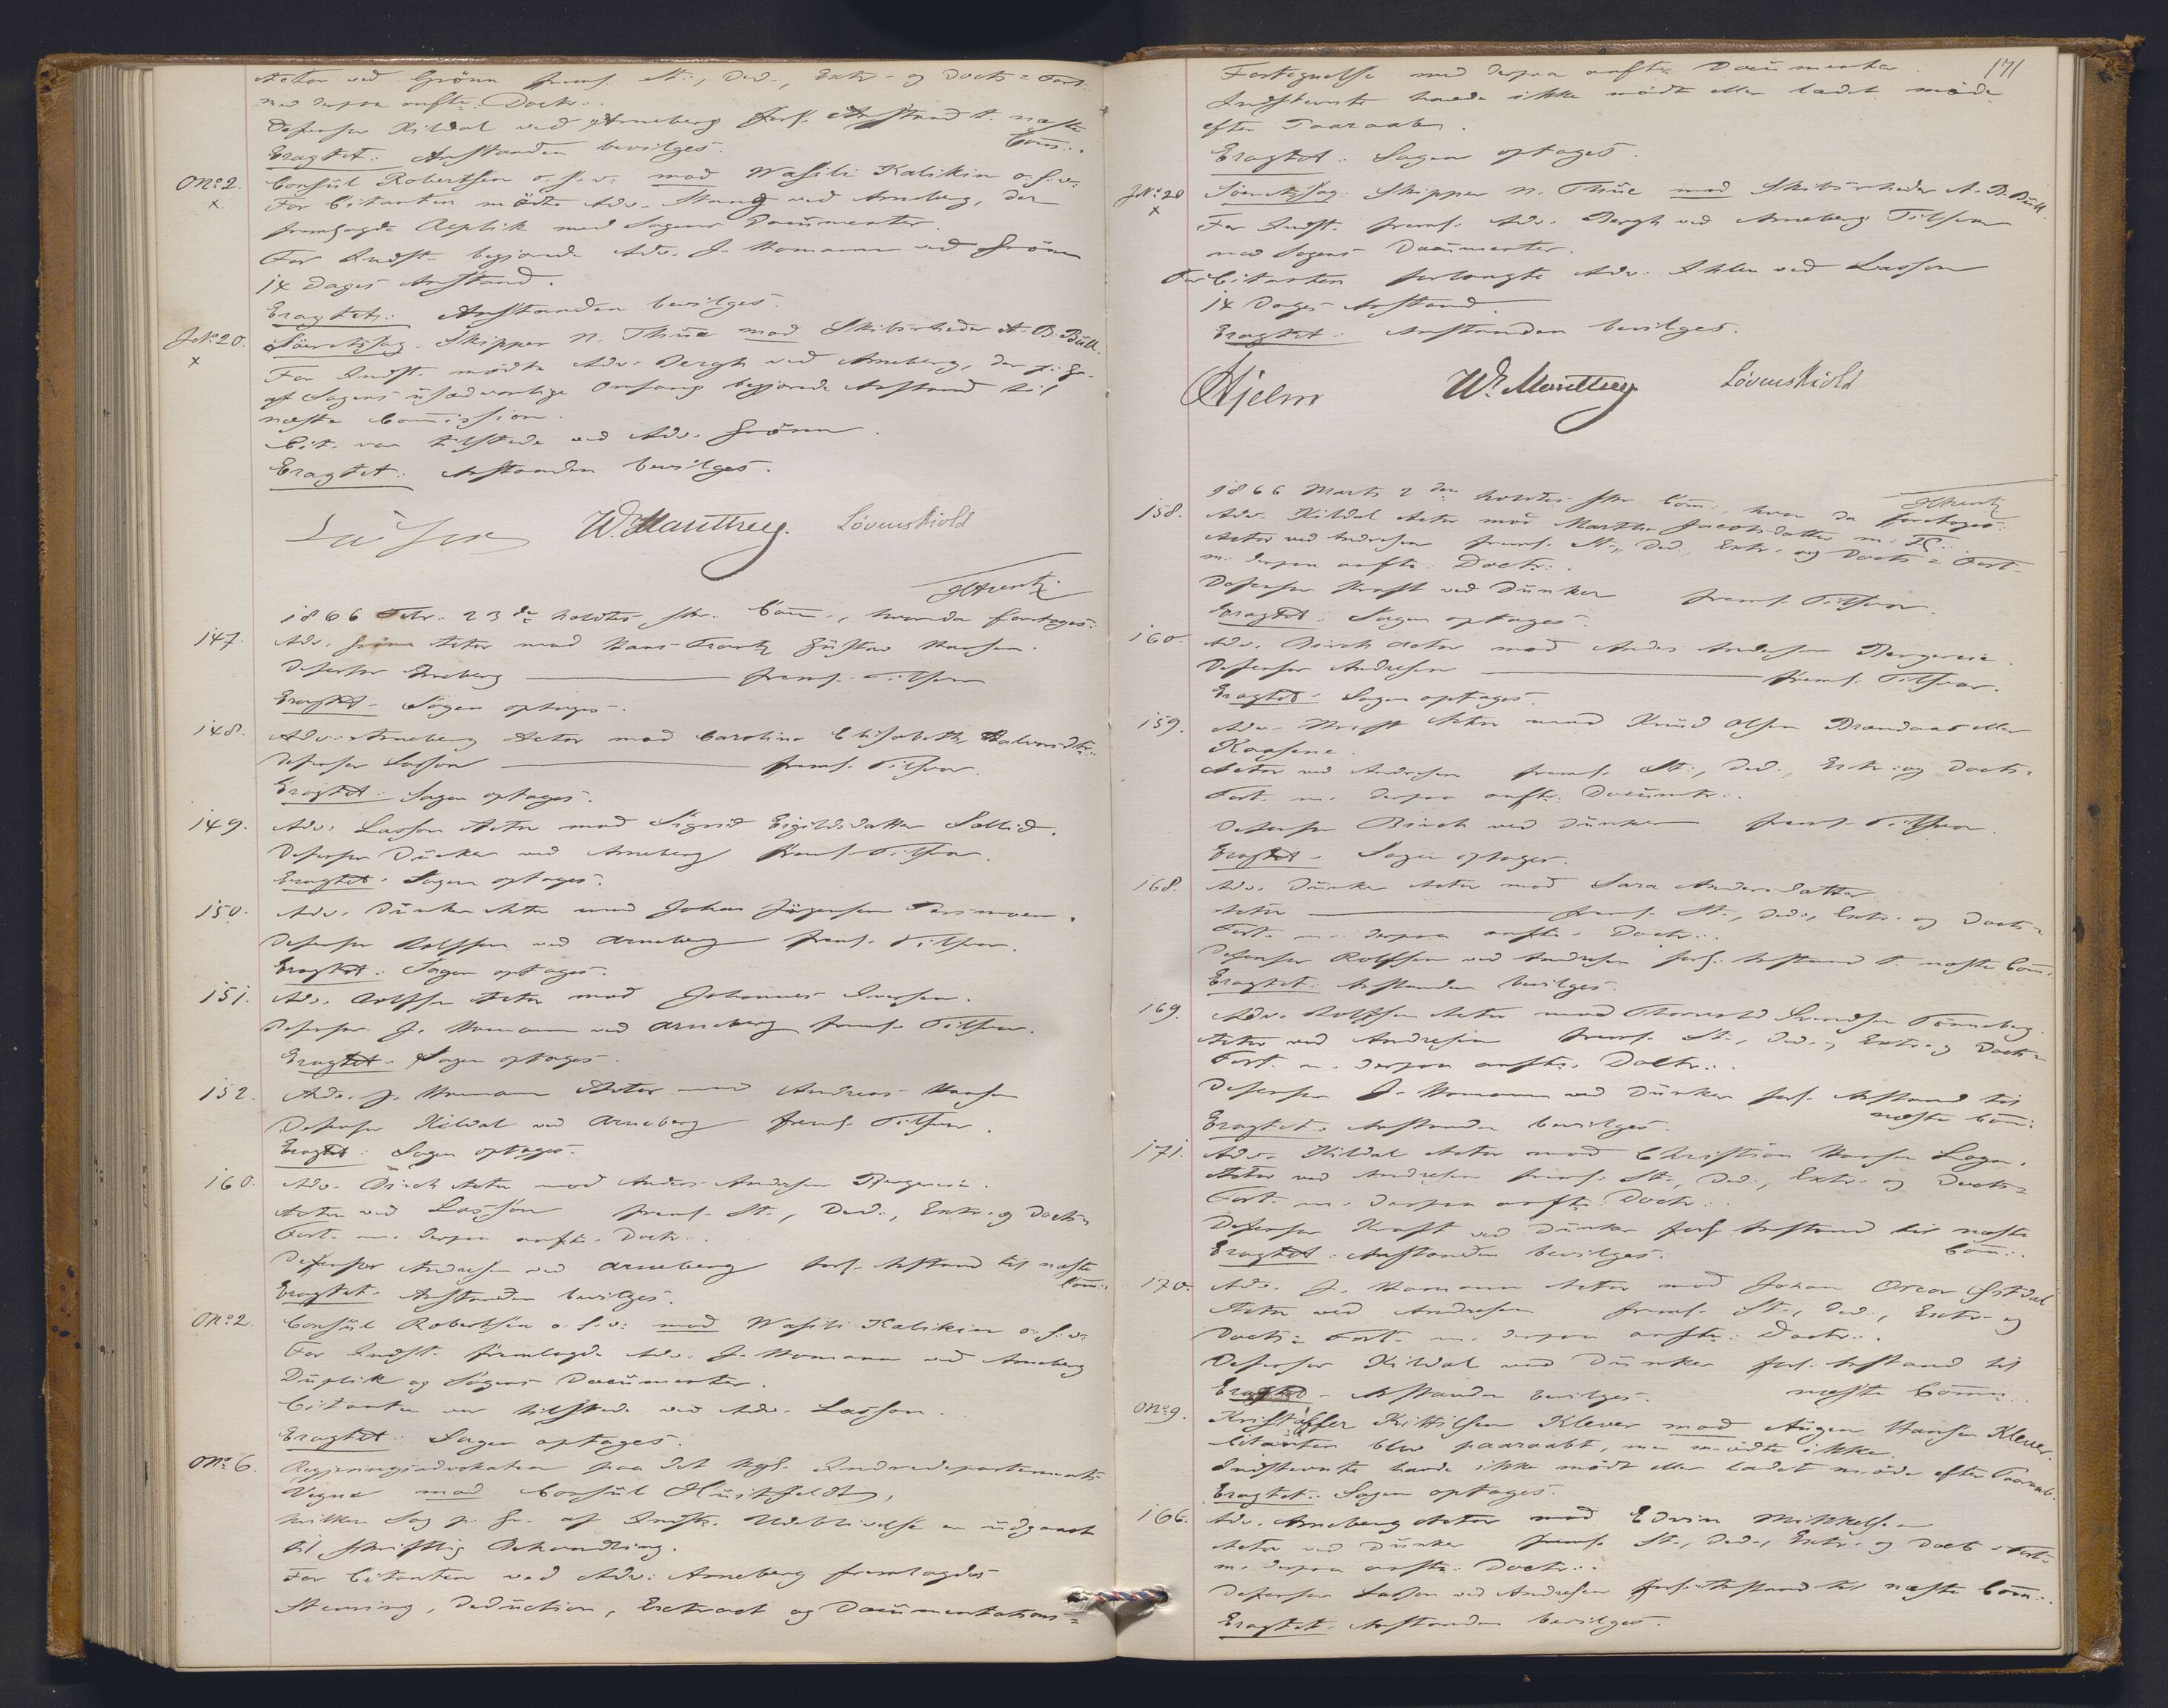 Actor ved Grönn freml. St:, Ded., Extr- og Docts= Fort.
med derpaa anfte. Doctr.
Defensor Kildal ved Arneberg forl. Anstand t. næste
Com:.
Eragtet: Anstanden bevilges.
No 2. Consül Robertsen o. s. v: mod Wasili Kalikin o. s. v:
x
For Citanten mødte Adv. Stang ved Arneberg, der
fremlagde Replik med Sagens Documenter.
For Indst. begjerede Adv. J. Homann ved Grönn
14 Dages Anstand.
Eragtet: Anstanden bevilges.
No 20. Söeretssag. Skipper N. Thüe mod Skibsrheder A. B. Büll.
x
For Indst. mødte Adv. Bergh ved Arneberg, der p. Gr.
af Sagens usædvanlige Omfang begjerede Anstand til
næste Commission.
Cit. var tilstede ved Adv. Grönn.
Eragtet: Anstanden bevilges.
W. Manthey. Løvenskiold
1866 Febr. 23de holdtes Com., hvorda foretoges:
147. Adv. Grönn Actor mod Hans Frantz Güstav Hansen.
Defensor Arneberg freml. Tilsvar
Eragtet. Sagen optages.
148. Adv. Arneberg Actor mod Carolina Elisabeth Halvorsdtr.
Defensor Lasson freml. Tilsvar.
Eragtet: Sagen optages.
149. Adv. Lasson Actor mod Sigrid Eigildsdatter Sollid.
Defensor Dünker ved Arneberg freml. Tilsvar.
Eragtet. Sagen optages.
150. Adv. Dünker Actor mod Johan Jörgensen
Defensor Rolffsen ved Arneberg freml. Tilsvar.
Eragtet: Sagen optages.
151. Adv. Rolffsen Actor mod Johannes Iversen.
Defensor J. Homann ved Arneberg freml. Tilsvar.
Eragtet. Sagen optages.
152. Adv. J. Homann Actor mod Andreas Hansen
Defensor Kildal ved Arneberg freml. Tilsvar.
Eragtet: Sagen optages.
160. Adv. Birch Actor mod Anders Andersen Bergereie.
Actor ved Lasson freml. St., Ded., Extr. og Docts=
Fort. m. derpaa anfte. Doctr.
Defensor Andresen ved Arneberg forl. Anstand til næste
Com:.
Eragtet. Anstanden bevilges.
No 2. Consül Robertsen o. s. v: mod Wasili Kalikin o. s. v:
For Indst. fremlagde Adv. J. Homann ved Arneberg
Düplik og Sagens Documenter.
Citanten var tilstede ved Adv. Lasson.
Eragtet: Sagen optages.
No 6. Regjeringsadvokaten paa det kgl. Indredepartements
Vegne mod Consül Hüitfeldt,
hvilken Sag p. Gr. af Indst. Udeblivelse er udgaaet
til skriftlig Behandling.
For Citanten ved Adv: Arneberg fremlagdes
Stevning, Deduction, Extract og Documentations=
171
Fortegnelse med derpaa anfte Documenter.
Indstevnte havde ikke mødt eller ladet møde
efter Paaraab.
Eragtet: Sagen optages.
No 20 Söeretssag: Skipper N. Thüe mod Skibsrheder A. B. Büll.
x
For Indst. freml. Adv. Bergh ved Arneberg Tilsvar
med Sagens Documenter.
For Citanten forlangte Adv. Ihlen ved Lasson
14 Dages Anstand.
Eragtet: Anstanden bevilges.
Hjelm W. Manthey Løvenskiold
1866 Marts 2den holdtes Com. hvor da foretoges:
158. Adv. Kildal Actor mod Marthe Jacobsdatter m. Fl.
Actor ved Andresen freml. St., Ded., Extr. og Docts= Fort.
m. derpaa anfte. Doctr:.
Defensor Kraft ved Dünker freml. Tilsvar.
Eragtet: Sagen optages.
160. Adv. Birch Actor mod Anders Andersen Bergereie.
Defensor Andresen freml. Tilsvar.
Eragtet. Sagen optages.
159. Adv. Actor mod Knüd Olsen Brandaas eller
Kaasene.
Actor ved Andresen freml. St., Ded., Extr. og Docts=
Fort. m. derpaa anfte: Documtr:.
Defensor Birch ved Dünker freml. Tilsvar.
Eragtet. Sagen optages.
168. Adv. Dünker Actor mod Sara Andersdatter
Actor freml. St., Ded., Extr. og Docts=
Fort. m. derpaa anfte. Doctr:.
Defensor Rolffsen ved Andresen forl. Anstand t. næste Com:
Eragtet. Anstanden bevilges.
169. Adv. Rolffsen Actor mod Thorvald Svendsen Tönneberg.
Actor ved Andresen freml. St., Ded., Extr. og Docts=
Fort. m. derpaa anfte. Doctr:.
Defensor J. Homann ved Dünker forl. Anstand til
næste Com:
Eragtet. Anstanden bevilges.
171. Adv. Kildal Actor mod Christian Hansen Lagen.
Actor ved Andresen freml. St., Ded., Extr. og Docts=
Fort. m. derpaa anfte. Doctr:.
Defensor Kraft ved Dünker forl. Anstand til næste
Com:.
Eragtet: Anstanden bevilges.
170. Adv. J. Homann Actor mod Johan Oscar Östdal
Actor ved Andresen freml. St., Ded., Extr. og
Docts= Fort. m. derpaa anfte: Doctr:.
Defensor Kildal ved Dünker forl. Anstand til
næste Comm:
Eragtet. Anstanden bevilges.
No 9. Kristoffer Kittilsen Klever mod Aügen Hansen Klever.
Citanten blev paaraabt, men mødte ikke.
Indstevnte havde ikke mødt eller ladet møde efter Paaraab.
Eragtet: Sagen optages.
166. Adv. Arneberg Actor mod Edvin Mikkelsen
Actor ved Dünker freml. St., Ded., Extr. og Docts= Fort.
m. derpaa anfte. Doctr:.
Defensor Lasson ved Andresen forl. Anstand til næste Com:.
Eragtet. Anstanden bevilges.